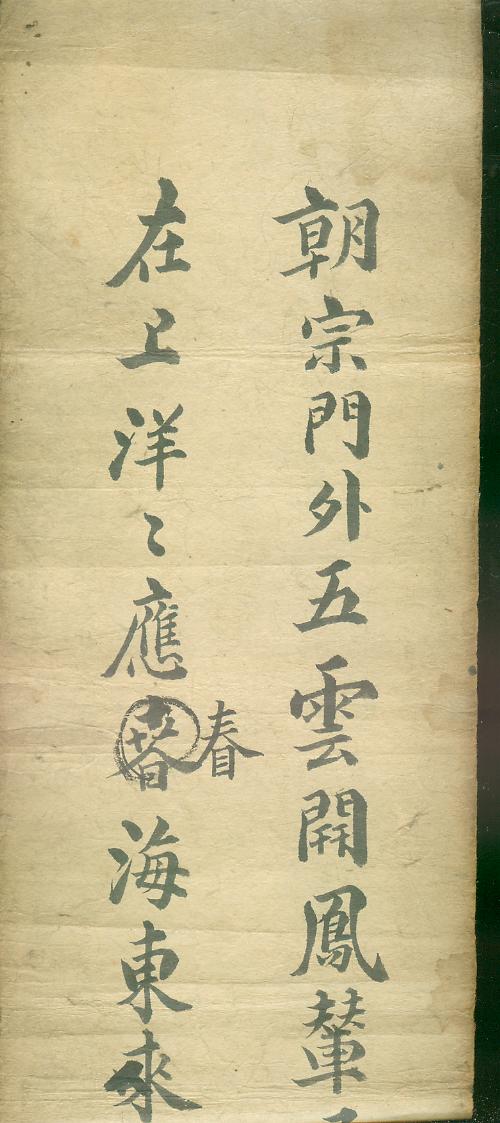 朝宗門外五雲開鳳輦
在上洋〻應眷海東來
春